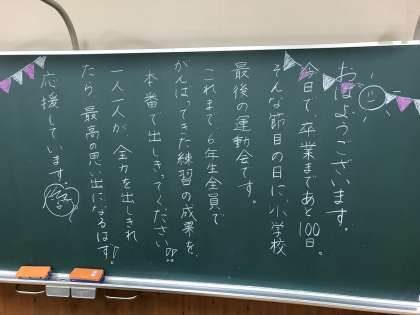 おはようございます。
今日で、卒業まであと100日。
そんな節目の日に、小学校
最後の運動会です。
これまで6年生全員で
がんばってきた練習の成果を、
本番で出しきってください!!
一人一人が、全力を出しきれ
たら、最高の思い出になるはず!
応援しています。